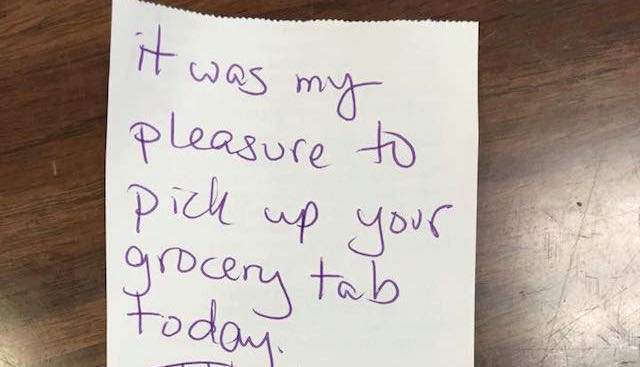 it was my
pleasure to
pick up your
grocery tab
today.